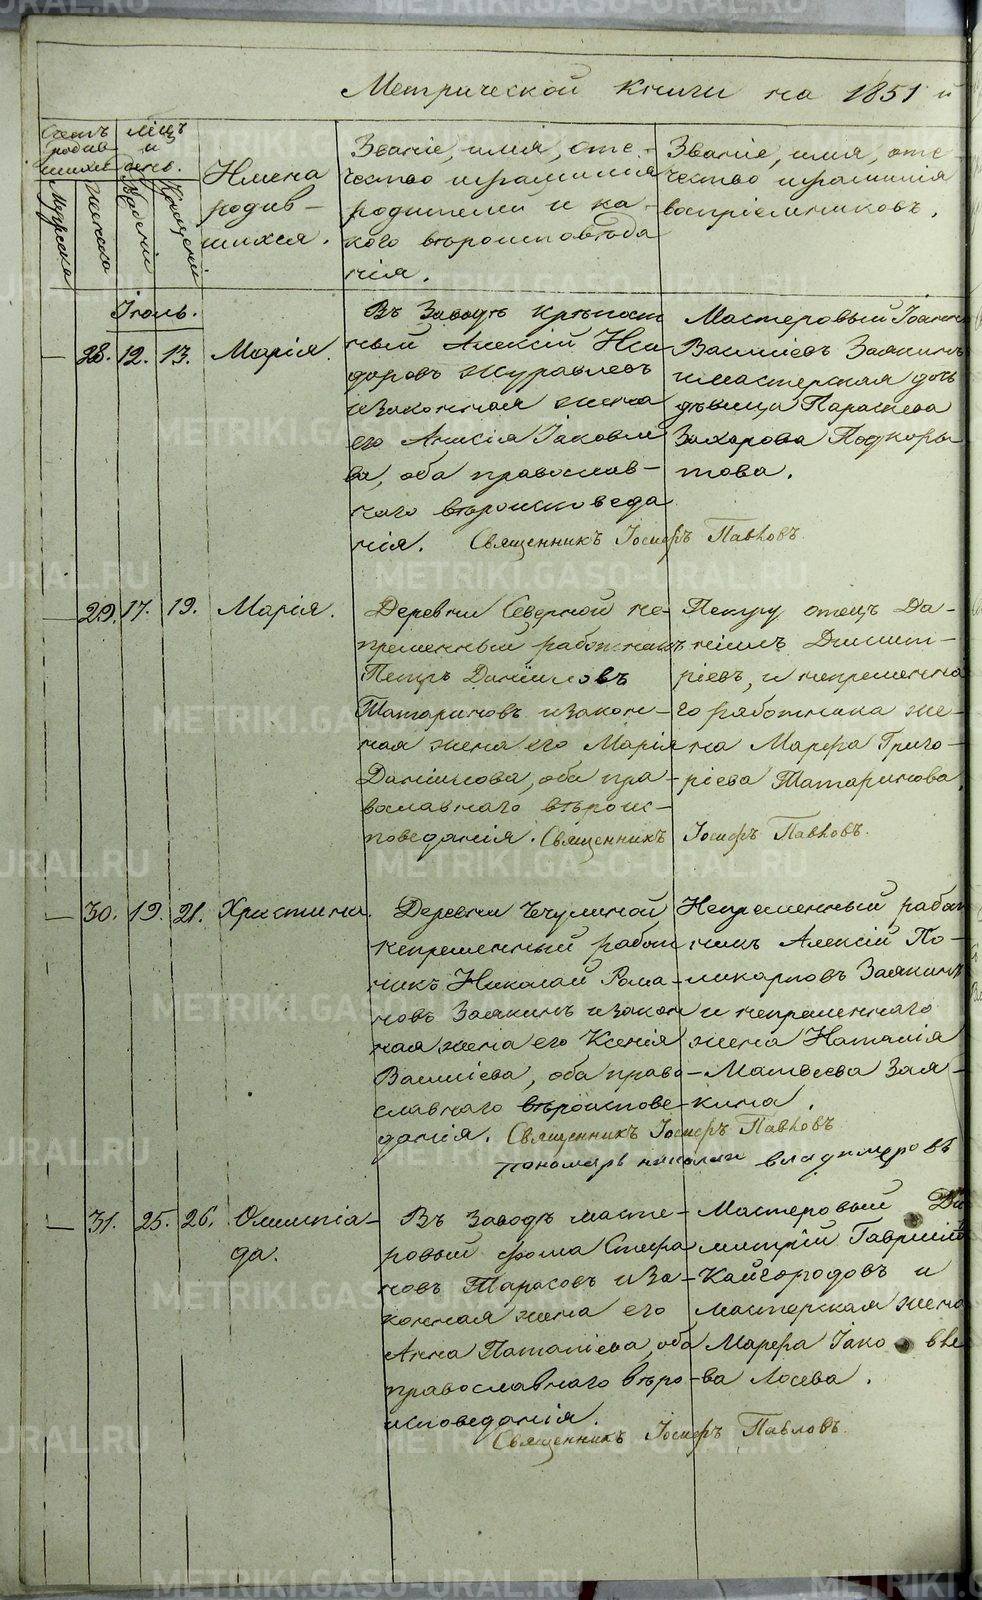 Метрической книги на 1851 й
Счетъ родив-шихся
Мужеска
Женска
Мѣсц. и день.
Рожденія
Крещенія
Имена
родив-
шихся.
Званіе, имя, оте-
чество и фамилія
родителей и ка-
кого вѣроисповѣда
нія.
Званіе, имя, оте-
чество и фамилія
воспріемниковъ.
Іюль.
28. 12. 13. Марія.
Въ Заводѣ крѣпост
ный Алексій
доровъ Журавлевъ
и законная жена
его Анисія Іаковле
ва, оба православ-
наго вѣроисповеда
нія. Священникъ Іосифъ Павловъ.
Мастеровый Іоаннъ
Василіевъ Заякинъ
и мастерская дочь
дѣвица Параскева
Захарова Подкоры-
това.
29. 17. 19. Марія.
Деревни Северной не-
пременный работникъ
Петръ Даніиловъ
Татариновъ и закон-
ная жена его Марія
Даніилова, оба пра-
вославнаго вѣроис-
поведанія. Священникъ Іосифъ Павловъ.
Петру отецъ Да-
ніилъ Димит-
ріевъ, и непременна
го работника же-
на Марѳа Григо-
ріева Татаринова.
30. 19. 21. Христина.
Деревни Чечулиной
непременный работ
никъ Николай Рома-
новъ Заякинъ и закон
ная жена его Ксенія
Василіева, оба право-
славнаго вѣроиспове-
данія. Священникъ Іосифъ Павловъ.
Непременный работ
никъ Алексій По-
ликарповъ Заякинъ
и непременнаго
жена Наталія
Матвеева Зая-
кина.
пономарь николаи владимеровъ
31. 25. 26. Олимпіа-
да.
Въ Заводѣ масте-
ровый Фома Стефа
новъ Тарасовъ и за-
конная жена его
Анна Патапіева, оба
православнаго вѣро-
исповеданія.
Священникъ Іосифъ Павловъ.
Мастеровый Ди
митрій Гавриіло
Кайгородовъ и
мастерская жена
Марѳа Іако вле
ва Лосева.
METRIKI.GASO-URAL.RU